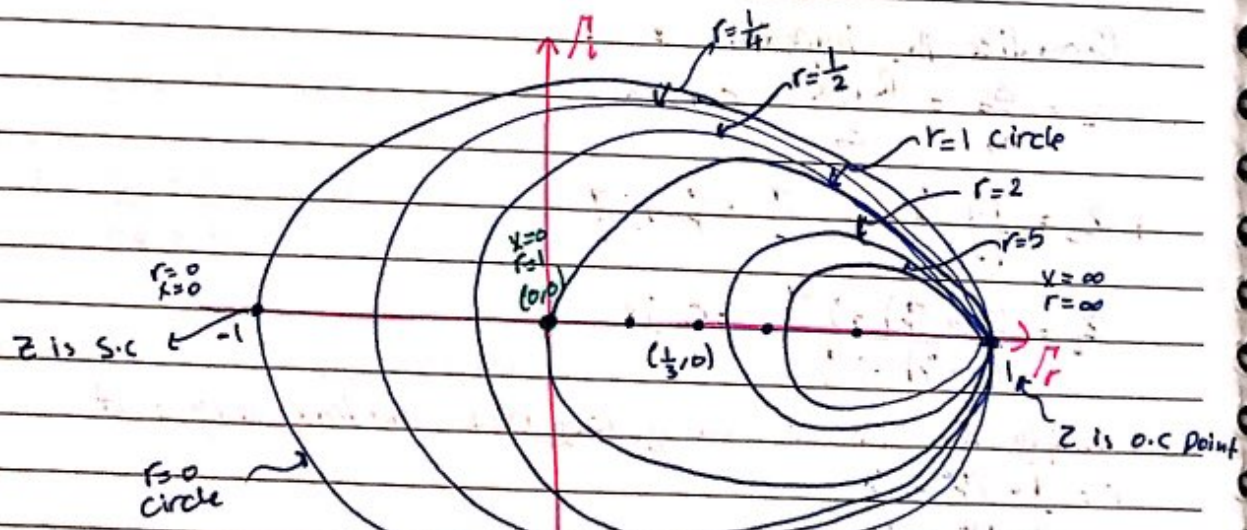 Γi
r=1/4
r=1/2
r=1 circle
r=2
r=5
x=0
r=1
(0,0)
r=0
x=0
x=∞
r=∞
-1
Z is S.C
(1/3,0)
1
Γr
Z is O.C Point
r=0
circle